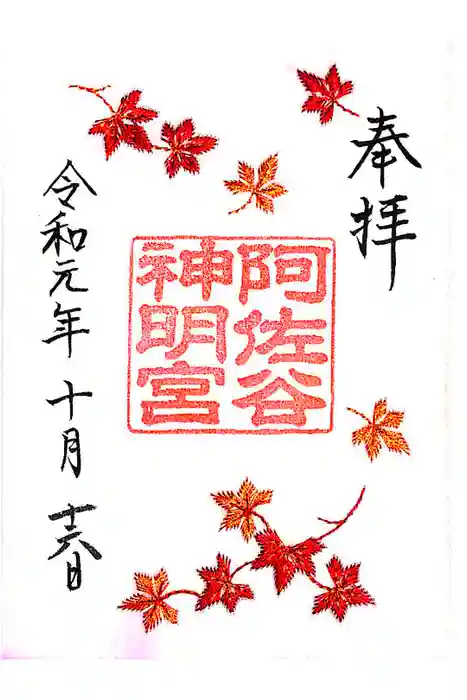 奉拝
阿佐谷
神明宮
令和元年十月十六日